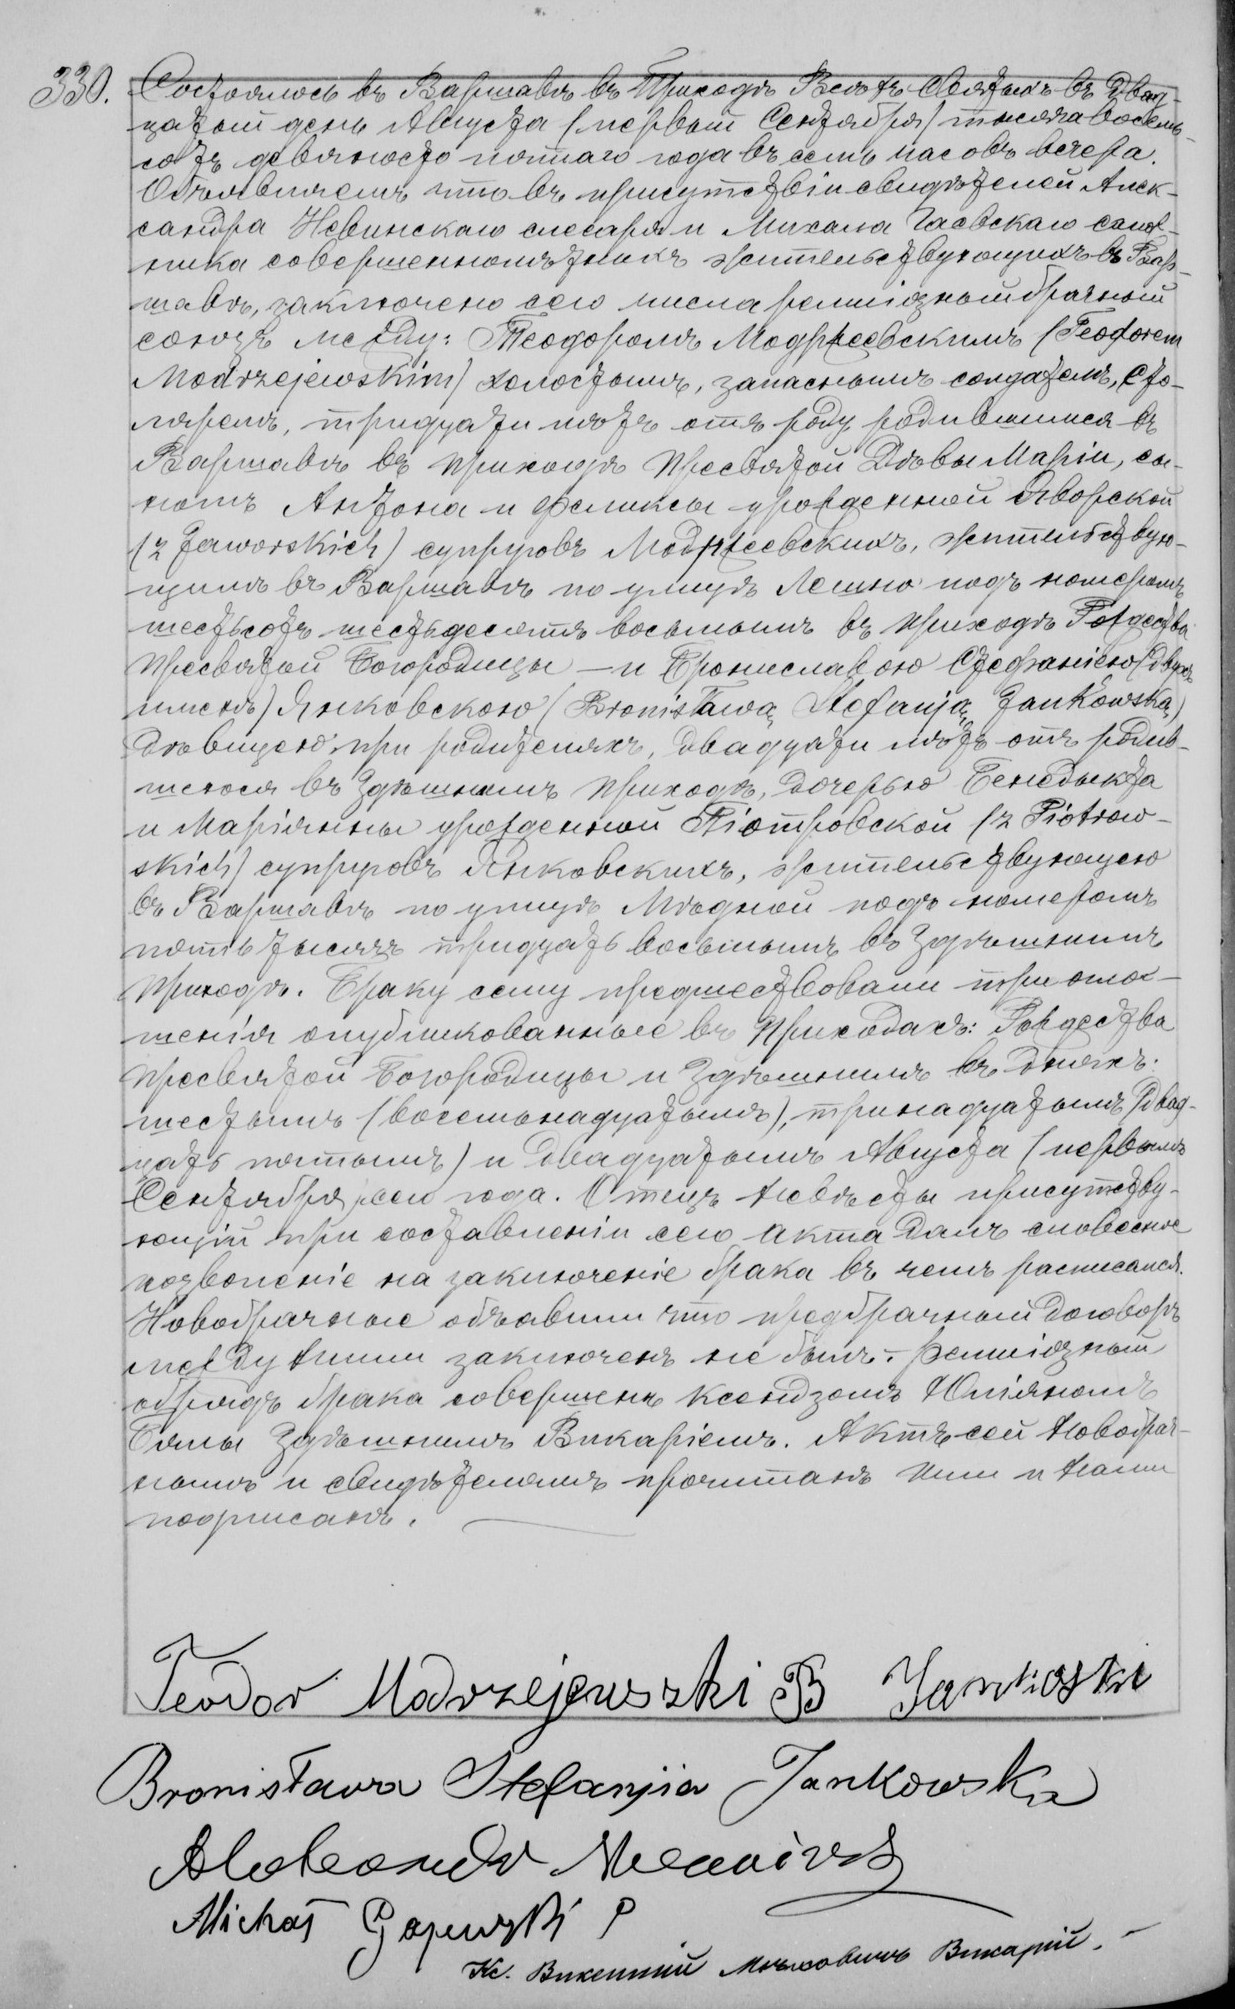 330. Состоялось въ Варшавѣ въ Приходѣ Всѣхъ Святыхъ въ Двад-
цатый день Августа (первый Сентября) тысяча восемь-
сотъ девяносто пятаго года въ семь часовъ вечера.
Объявляемъ что въ присутствіи свидѣтелей Алек-
сандра Невинскаго слесаря и Михала Гаевскаго
ника совершеннолѣтнихъ жительствующихъ въ Вар-
шавѣ, заключено сего числа религіозный брачный
союзъ между: Теодоромъ Модржеевскимъ (Teodorem
Modrzejewskim) холостымъ, запаснымъ солдатомъ, сто-
ляремъ, тридцати лѣтъ отъ роду родившимся въ
Варшавѣ въ приходѣ Пресвятой Дѣвы Маріи, сы-
номъ Антона и Феликсы урожденной Яворской
(z Jaworskich) супруговъ Модржеевскихъ, жительствую-
щимъ въ Варшавѣ по улицѣ Лешно подъ номеромъ
шестьсотъ шестьдесятъ восьмымъ въ приходѣ Рождества
Пресвятой Богородицы — и Брониславою Стефаніею (двухъ
именъ) Янковскою (Bronisławą Stefanją Jankowską)
Дѣвицею при родителяхъ, двадцати лѣтъ отъ родив-
шеюся въ здѣшнемъ приходѣ, дочерью Бенедыкта
и Маріянны урожденной Піотровской (z Piotrow-
skich) супруговъ Янковскихъ, жительствующею
въ Варшавѣ по улицѣ Мѣдной подъ номеромъ
пять тысячъ тридцать восьмымъ въ здѣшнемъ
приходѣ. Браку сему предшествовали три огла-
шенія опубликованные въ приходахъ: Рождества
Пресвятой Богородицы и здѣшнимъ въ дняхъ:
шестымъ (восемьнадцатымъ), тринадцатымъ (двад-
цать пятымъ) и двадцатымъ Августа (первымъ
Сентября) сего года. Отецъ невѣсты присутству-
ющій при составленіи сего акта далъ словесное
позволеніе на заключеніе брака въ чемъ расписался.
Новобрачные объявили что предбрачный договоръ
между ними заключенъ не былъ. — Религіозный
обрядъ брака совершенъ ксендзомъ Юліяномъ
здѣшнимъ Викаріемъ. Актъ сей новобрач-
нымъ и свидѣтелямъ прочитанъ ими и нами
подписанъ.
Teodor Modrzejewszki B Jankoski
Bronisława Stefanjia Jankowska
Aleksandr
Michał Gajewski P
Кс. Викентій Викарій. —